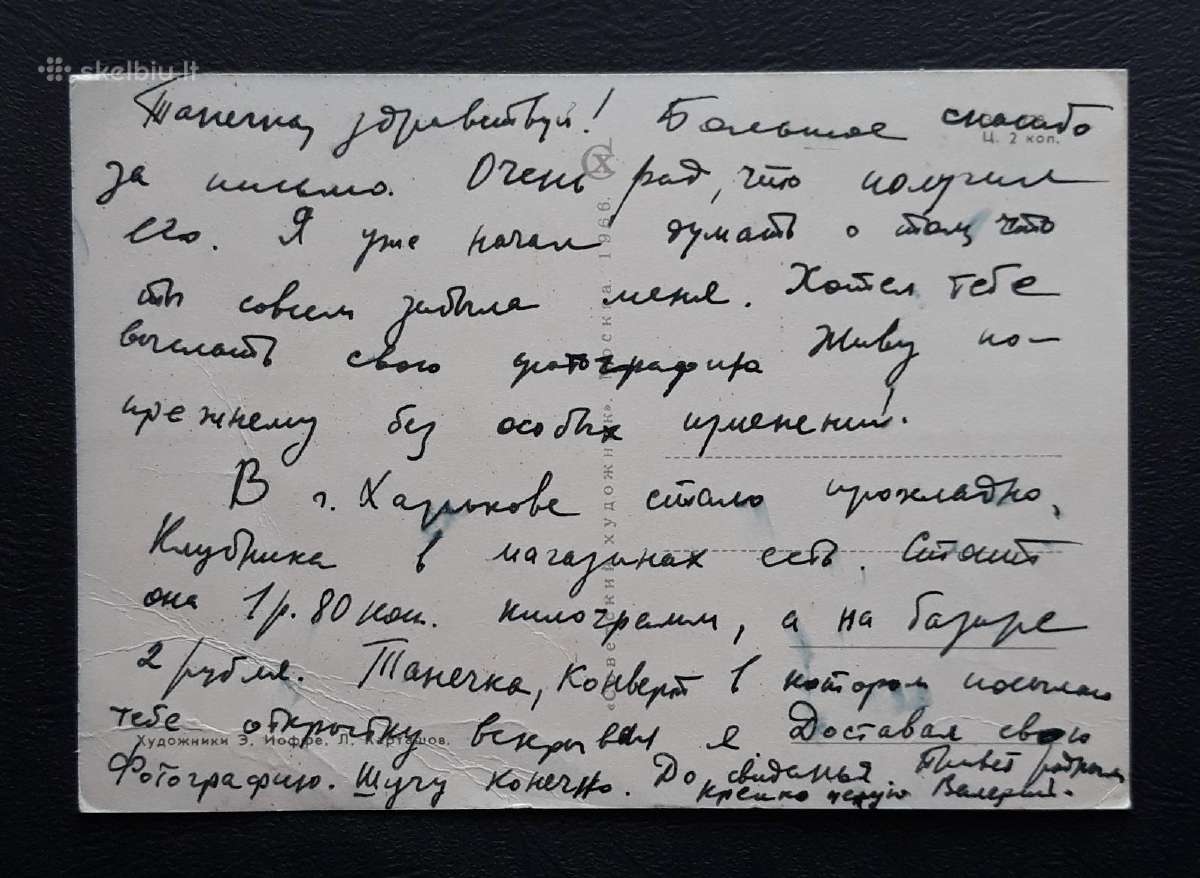 skelbiu.lt
Танечка, здравствуй! Большое спасибо
Ц. 2 коп.
за письмо. Очень рад, что получил
его. Я уже начал думать о том, что
ты совсем забыла меня. Хотел тебе
выслать свою фотографию Живу по-
прежнему без особых изменений!
В г. Харькове стало прохладно,
Клубника в магазинах есть. Стоит
она 1 р. 80 коп. килограмм, а на базаре
2 рубля. Танечка, Конверт в котором посылаю
тебе открытку вскрывал я. Доставал свою
Художники Э. Иоффе, Л. Карташов.
Фотографию. Шучу конечно. До свиданья. Привет родным
крепко целую Валерий.
«Советский художник». Москва. 1966.
СХ